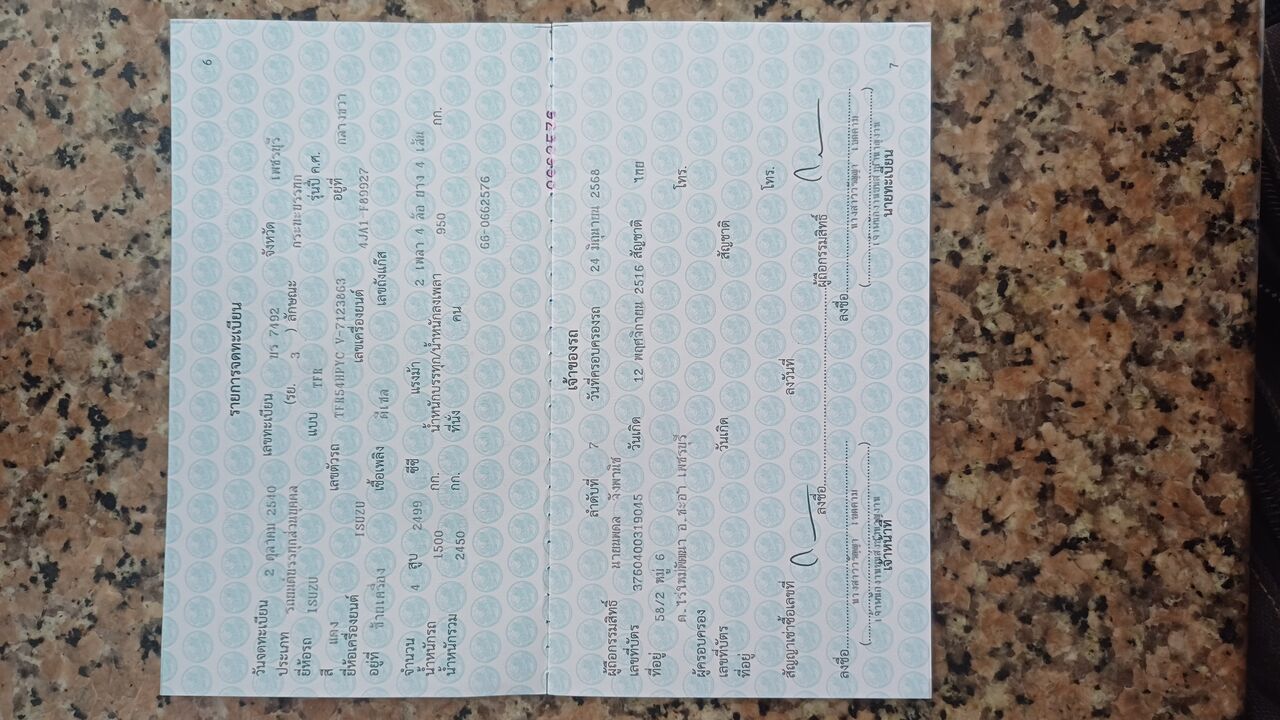 6
รายการจดทะเบียน
วันจดทะเบียน 2 ตุลาคม 2540 เลขทะเบียน บร 7492 จังหวัด เพชรบุรี
ประเภท รถยนต์บรรทุกส่วนบุคคล (รย. 3 ) ลักษณะ กระบะบรรทุก
ยี่ห้อรถ ISUZU แบบ TFR รุ่นปี ค.ศ.
สี แดง เลขตัวรถ TFR54HPYC V-7123863 อยู่ที่ กลางขวา
ยี่ห้อเครื่องยนต์ ISUZU เลขเครื่องยนต์ 4JA1 F89927
อยู่ที่ ซ้ายเครื่อง เชื้อเพลิง ดีเซล เลขถังแก๊ส
จำนวน 4 สูบ 2499 ซีซี แรงม้า 2 เพลา 4 ล้อ ยาง 4 เส้น
น้ำหนักรถ 1500 กก. น้ำหนักบรรทุก/น้ำหนักลงเพลา 950 กก.
น้ำหนักรวม 2450 กก. ที่นั่ง คน
66-0662576
เจ้าของรถ
ลำดับที่ 7 วันที่ครอบครองรถ 24 มิถุนายน 2568
ผู้ถือกรรมสิทธิ์
เลขที่บัตร 3760400319045 วันเกิด 12 พฤศจิกายน 2516 สัญชาติ ไทย
ที่อยู่ 58/2 หมู่ 6
ต.ไร่ใหม่พัฒนา อ.ชะอำ เพชรบุรี โทร.
ผู้ครอบครอง
เลขที่บัตร วันเกิด สัญชาติ
ที่อยู่
โทร.
สัญญาเช่าซื้อเลขที่ ลงวันที่
ลงชื่อ ผู้ถือกรรมสิทธิ์
ลงชื่อ ลงชื่อ
เจ้าหน้าที่ นายทะเบียน
7